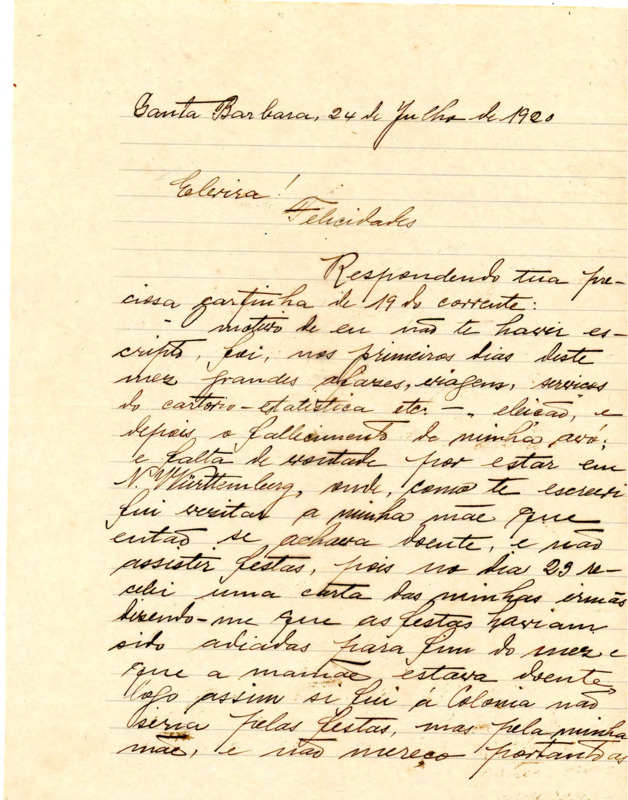 Santa Barbara, 24 de Julho de 1920
Elvira!
Felicidades
Respondendo tua pre-
ciosa cartinha de 19 do corrente:
- motivo de eu não te haver es-
cripto, foi, nos primeiros dias deste
mez grandes afazes, viagens, serviços
do cartorio-estatistica etc. - eleição, e
depois o fallecimento de minha avó;
e falta de vontade por estar em
N. Württemberg, onde, como te escrevi
fui vezitar a minha mãe que
então se achava doente, e não
assistir festas, pois no dia 23 re-
cebi uma carta das minhas irmãs
dizendo-me que as festas haviam
sido adiadas para fim do mez e
que a mamãe estava doente,
logo assim si fui á Colonia não
seria pelas festas, mas pela minha
mãe, e não mereço portanto as